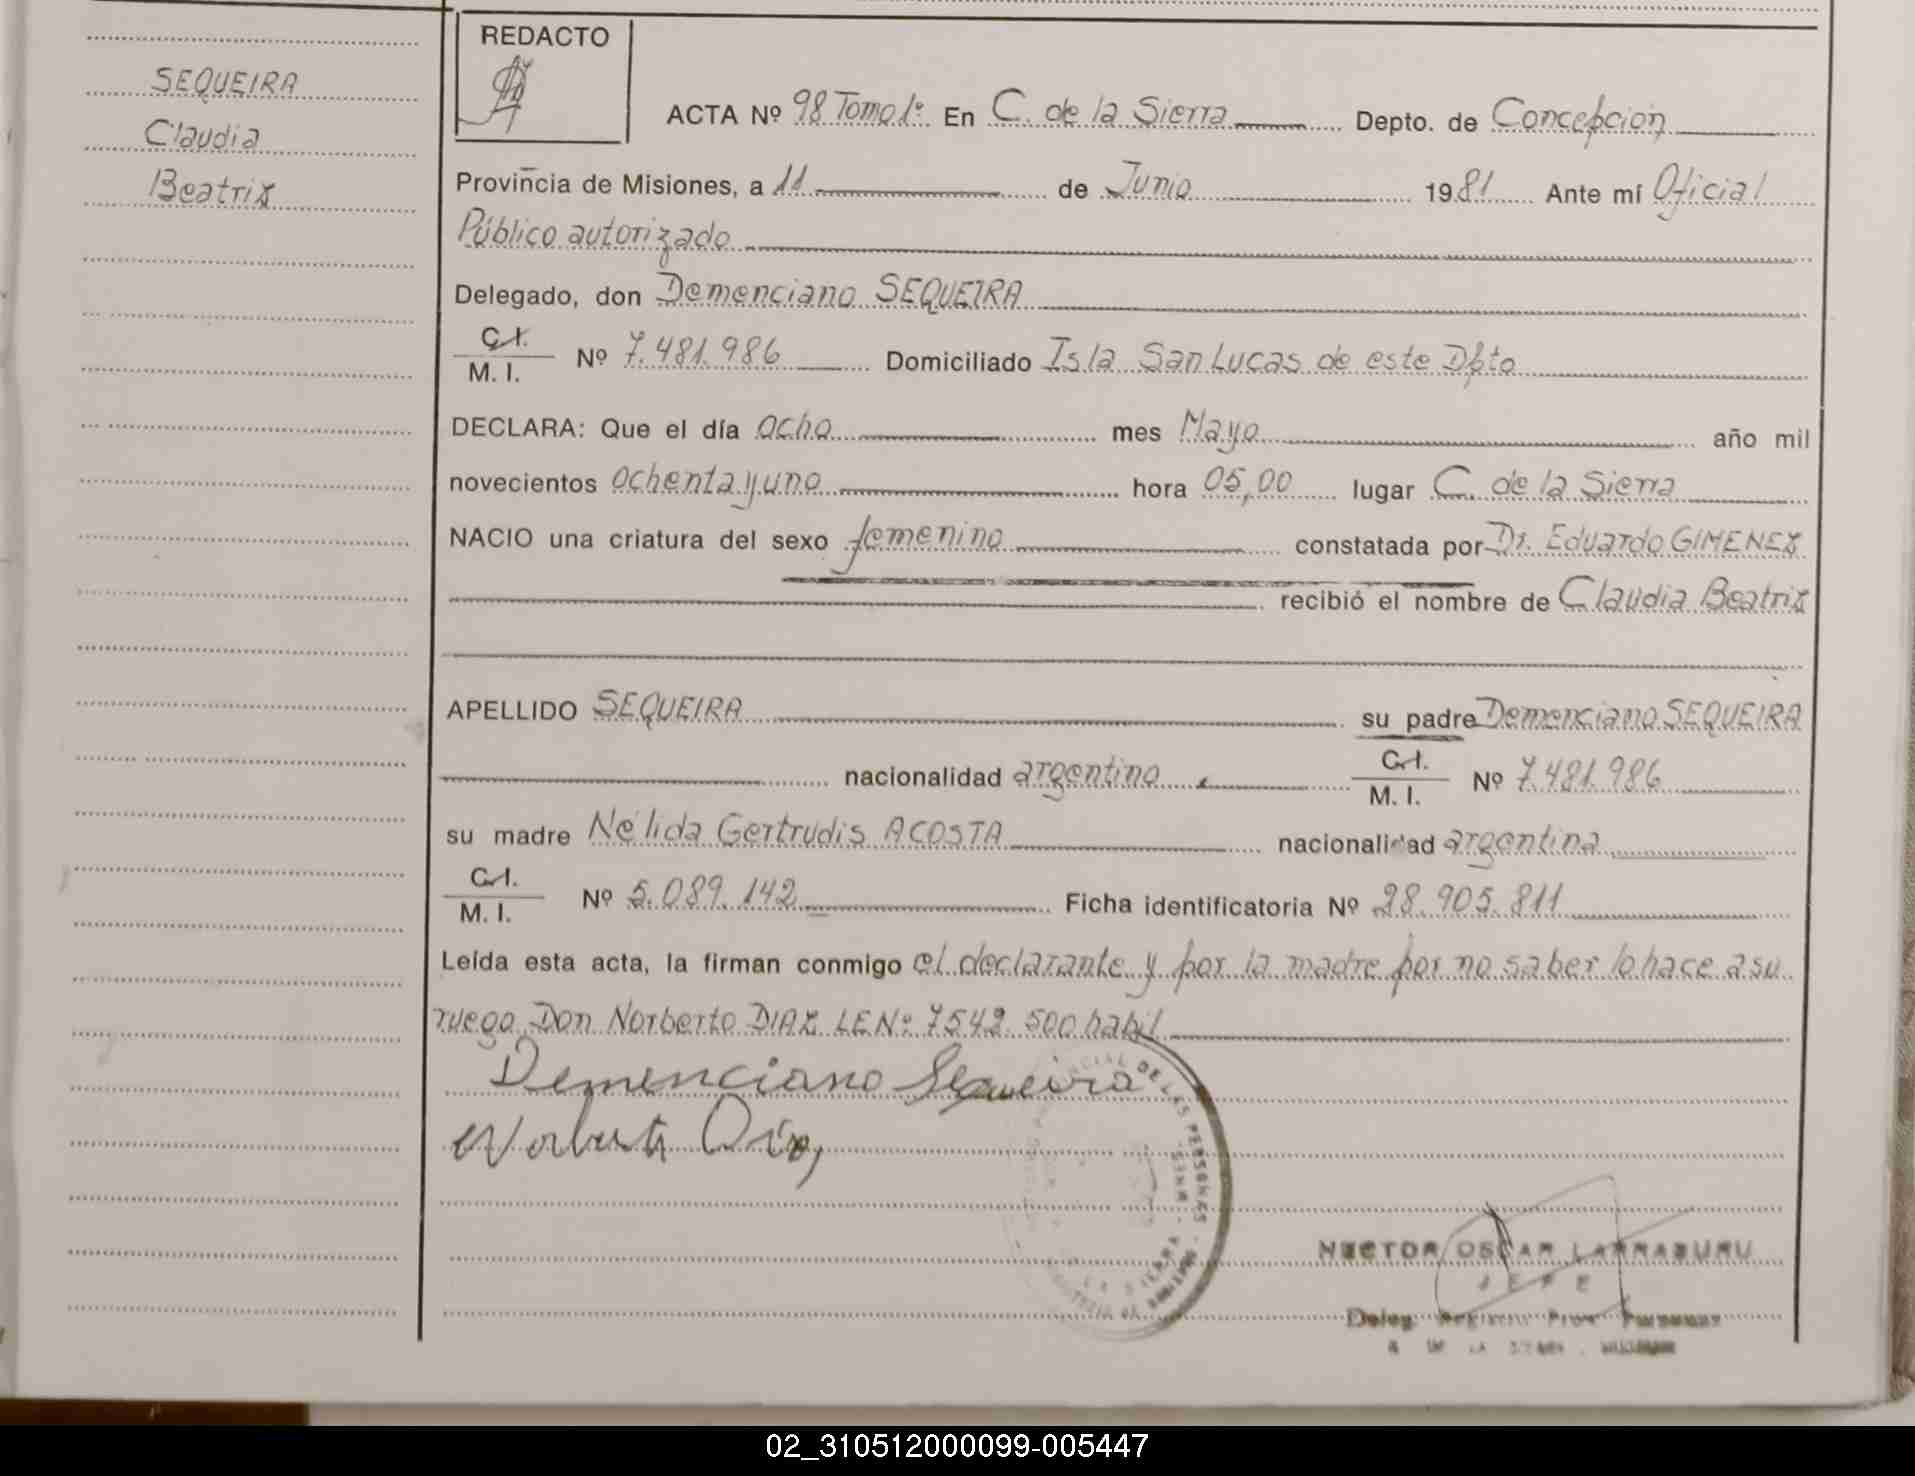 REDACTO
SEQUEIRA
Claudia
Beatriz
ACTA Nº 98 Tomo 1º En C. de la Sierra Depto. de Concepción
Provincia de Misiones, a 11 de Junio 1981 Ante mí Oficial
Público autorizado
Delegado, don Demenciano SEQUEIRA
C.I.
M. I. Nº 7.481.986 Domiciliado Isla San Lucas de este Dpto
DECLARA: Que el día ocho mes Mayo año mil
novecientos ochenta y uno hora 05,00 lugar C. de la Sierra
NACIO una criatura del sexo femenino constatada por Dr. Eduardo GIMENEZ
recibió el nombre de Claudia Beatriz
APELLIDO SEQUEIRA su padre Demenciano SEQUEIRA
nacionalidad argentina C.I.
M. I. Nº 7.481.986
su madre Nélida Gertrudis ACOSTA nacionalidad argentina
C.I.
M. I. Nº 5.089.142 Ficha identificatoria Nº 28.905.811
Leída esta acta, la firman conmigo el declarante y por la madre por no saber lo hace a su
ruego Don Norberto DIAZ LE Nº 7542.500 habil
Demenciano Sequeira
Norberto Diaz
DE LAS PERSONAS
HECTOR OSCAR LARRABURU
JEFE
Deleg. Registro Prov. Personas
C. DE LA SIERRA - MISIONES
02_310512000099-005447